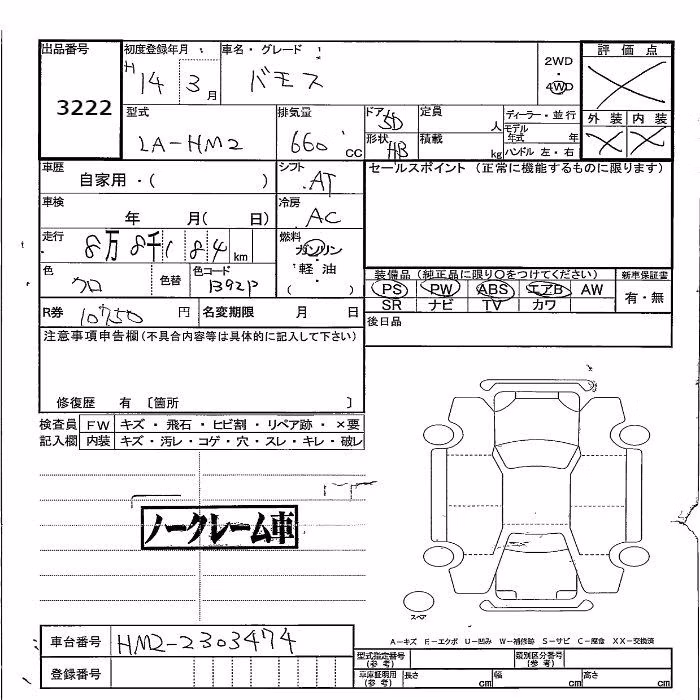 出品番号 初度登録年月 車名・グレード 2WD ・ 4WD 評価点
3222 H 14 3月 バモス
型式 排気量 ドア 5D 定員 人 ディーラー・並行 外装 内装
LA-HM2 660 CC 形状 HB 積載 kg モデル年式 年
ハンドル 左・右
車歴 自家用・( ) シフト AT セールスポイント (正常に機能するものに限ります)
車検 年 月( 日) 冷房 AC
走行 8万 8千 1 8 4 km 燃料 ガソリン・軽油・( )
色 クロ 色替 色コード B92P 装備品 (純正品に限り○をつけてください) 新車保証書
PS PW ABS エアB AW 有・無
SR ナビ TV カワ
R券 10750 円 名変期限 月 日 後日品
注意事項申告欄(不具合内容等は具体的に記入して下さい)
修復歴 有 〔箇所 〕
検査員 FW キズ・飛石・ヒビ割・リペア跡・×要
記入欄 内装 キズ・汚レ・コゲ・穴・スレ・キレ・破レ
ノークレーム車
スペア
A-キズ E-エクボ U-凹み W-補修跡 S-サビ C-腐食 XX-交換済
車台番号 HM2-2303474 型式指定番号(参考) 類別区分番号(参考)
登録番号 車庫証明用(参考) 長さ cm 幅 cm 高さ cm